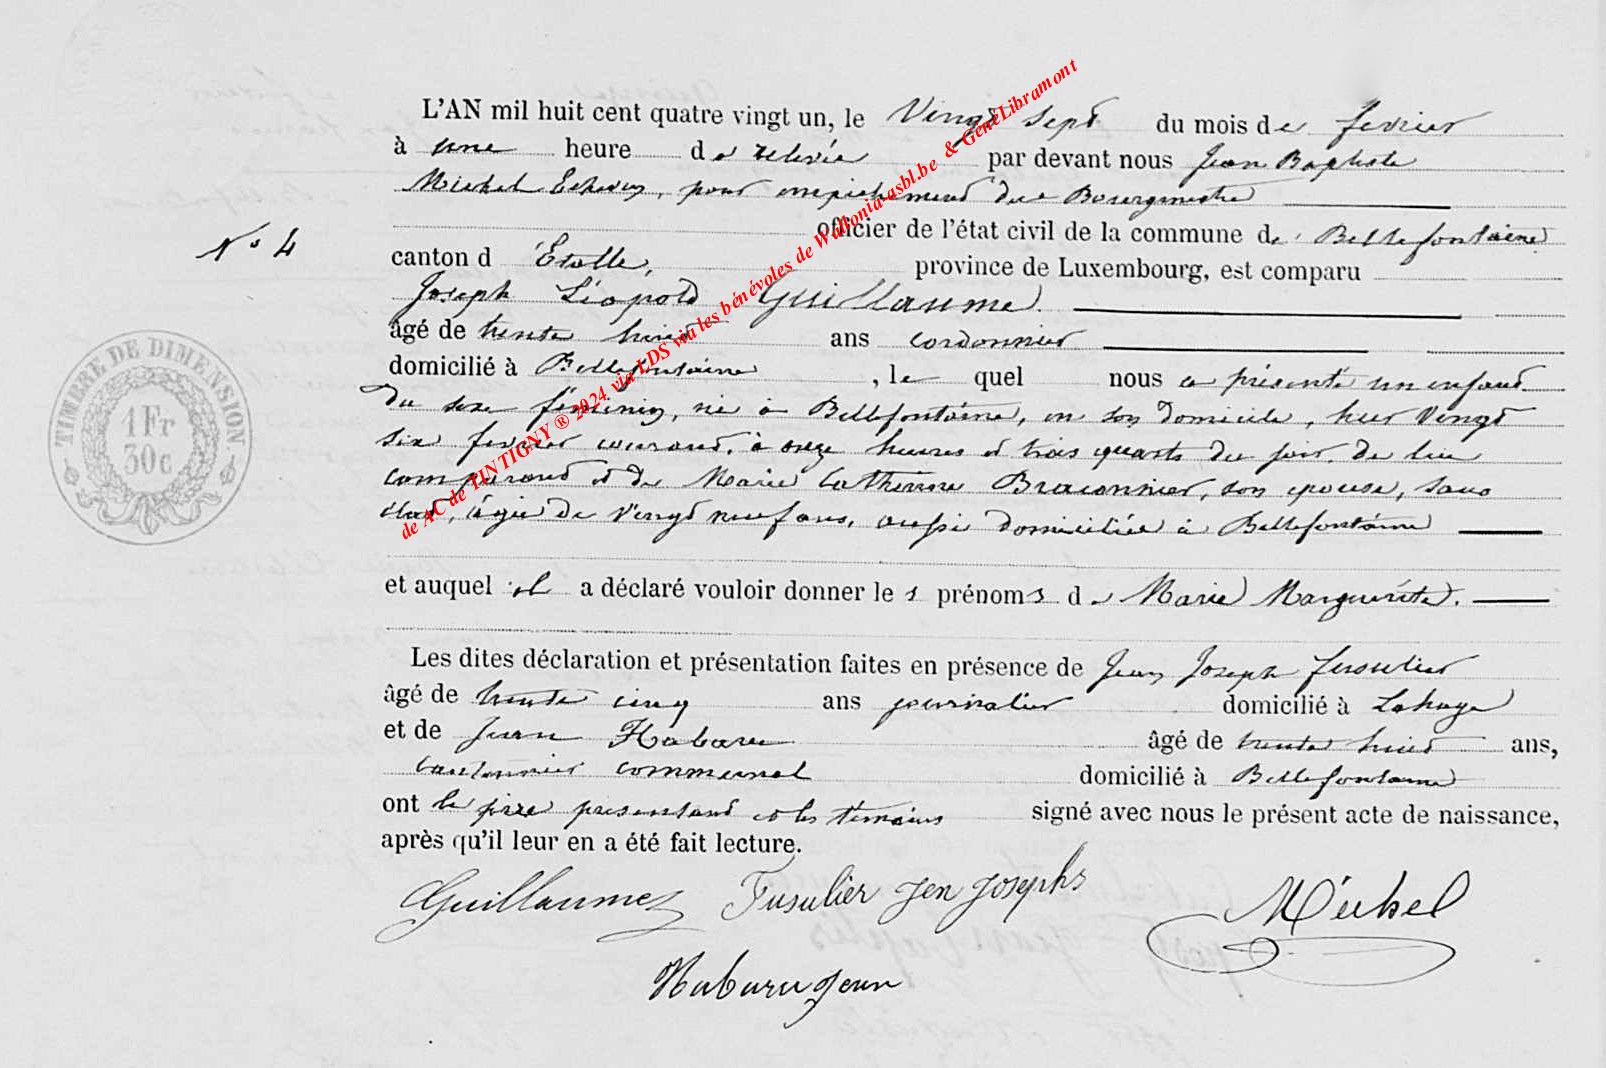 L'AN mil huit cent quatre vingt un, le Vingt sept du mois de fevrier
à une heure de relevée par devant nous Jean Baptiste
Michel Echevin, pour empêchement du Bourgmestre
officier de l'état civil de la commune de Bellefontaine
N° 4
canton d'Etalle, province de Luxembourg, est comparu
Joseph Léopold Guillaume.
âgé de trente huit ans cordonnier
domicilié à Bellefontaine, lequel nous a présenté un enfant
du sexe féminin, né à Bellefontaine, en son domicile, hier vingt
six fevrier courant, à onze heures et trois quarts du soir, de lui
comparant et de Marie Catherine Braconnier, son epouse, sans
état, âgée de vingt neuf ans, aussi domiciliée à Bellefontaine
et auquel il a déclaré vouloir donner les prénoms de Marie Marguerite.
Les dites déclaration et présentation faites en présence de Jean Joseph Fusulier
âgé de trente cinq ans journalier domicilié à Lahage
et de Jean Habaru âgé de trente huit ans,
cantonnier communal domicilié à Bellefontaine
ont le père présentant et les témoins signé avec nous le présent acte de naissance,
après qu'il leur en a été fait lecture.
Guillaume Fusulier Jen Josephs Michel
Habaru Jean
TIMBRE DE DIMENSION
1 Fr
30c
de AC de TINTIGNY ® 2024 via LDS via les bénévoles de Wallonia-asbl.be & GenéLibramont